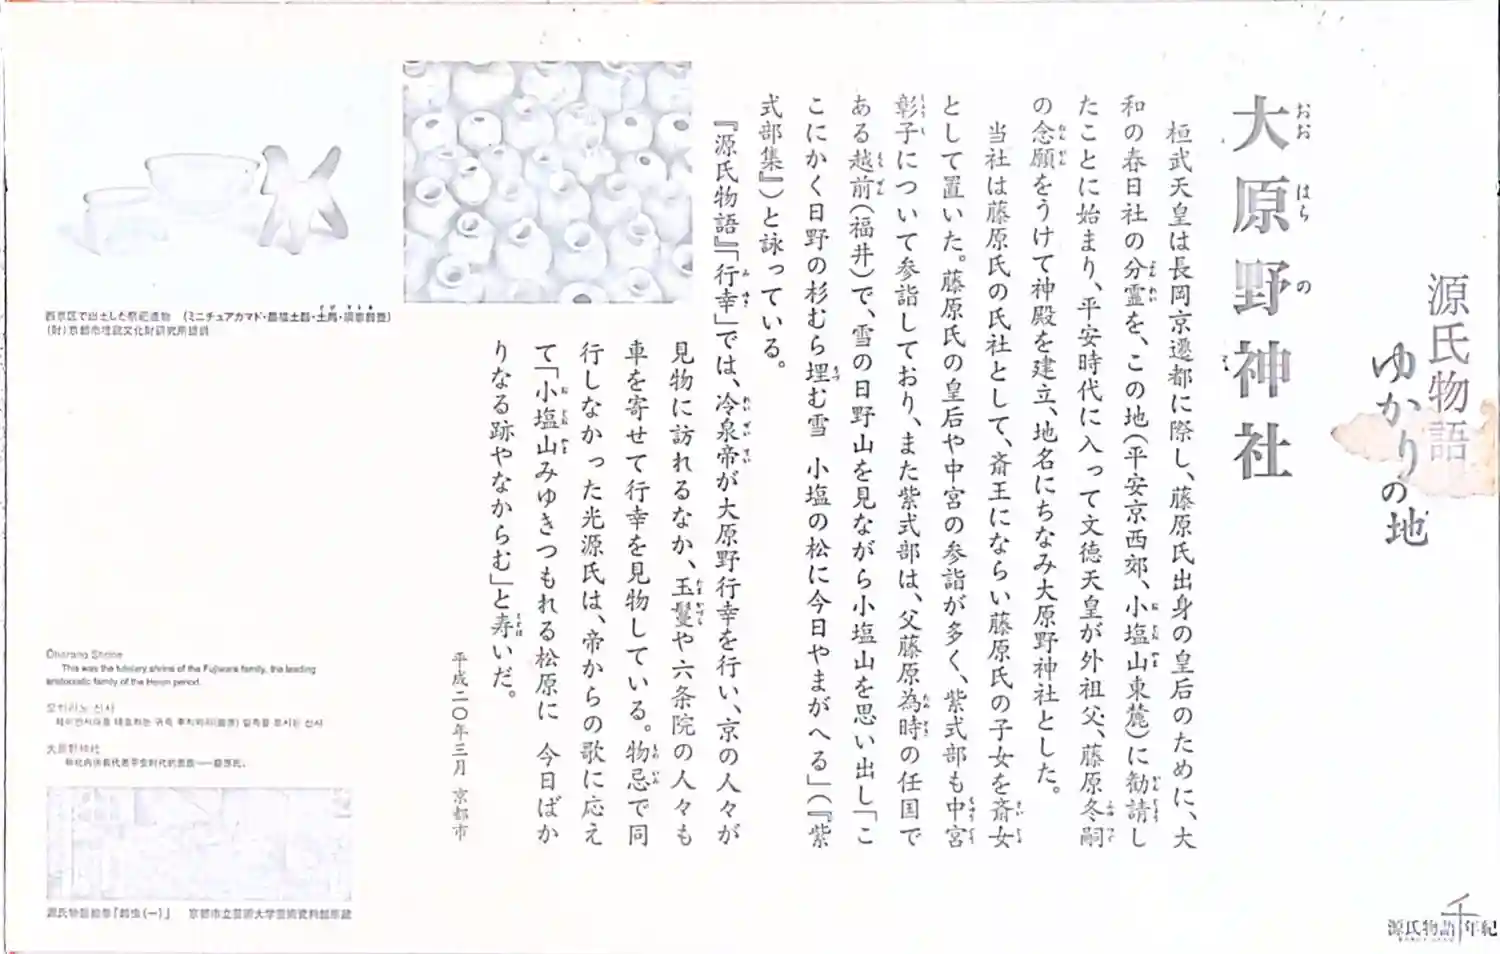 源氏物語
ゆかりの地
大原野神社
おお はら の
桓武天皇は長岡京遷都に際し、藤原氏出身の皇后のために、大
和の春日社の分霊を、この地（平安京西郊、小塩山東麓）に勧請し
たことに始まり、平安時代に入って文徳天皇が外祖父、藤原冬嗣
の念願をうけて神殿を建立、地名にちなみ大原野神社とした。
当社は藤原氏の氏社として、斎王にならい藤原氏の子女を斎女
として置いた。藤原氏の皇后や中宮の参詣が多く、紫式部も中宮
彰子について参詣しており、また紫式部は、父藤原為時の任国で
ある越前（福井）で、雪の日野山を見ながら小塩山を思い出し「こ
こにかく日野の杉むら埋む雪　小塩の松に今日やまがへる」（『紫
式部集』）と詠っている。
『源氏物語』「行幸」では、冷泉帝が大原野行幸を行い、京の人々が
見物に訪れるなか、玉鬘や六条院の人々も
車を寄せて行幸を見物している。物忌で同
行しなかった光源氏は、帝からの歌に応え
て「小塩山みゆきつもれる松原に　今日ばか
りなる跡やなからむ」と寿いだ。
平成二〇年三月　京都市
西京区で出土した祭祀遺物　（ミニチュアカマド・墨描土器・土馬・須恵器壺）
（財）京都市埋蔵文化財研究所提供
Oharano Shrine
This was the tutelary shrine of the Fujiwara family, the leading
aristocratic family of the Heian period.
오하라노 신사
大原野神社
源氏物語絵巻「鈴虫（一）」　京都市立芸術大学芸術資料館所蔵
源氏物語千年紀